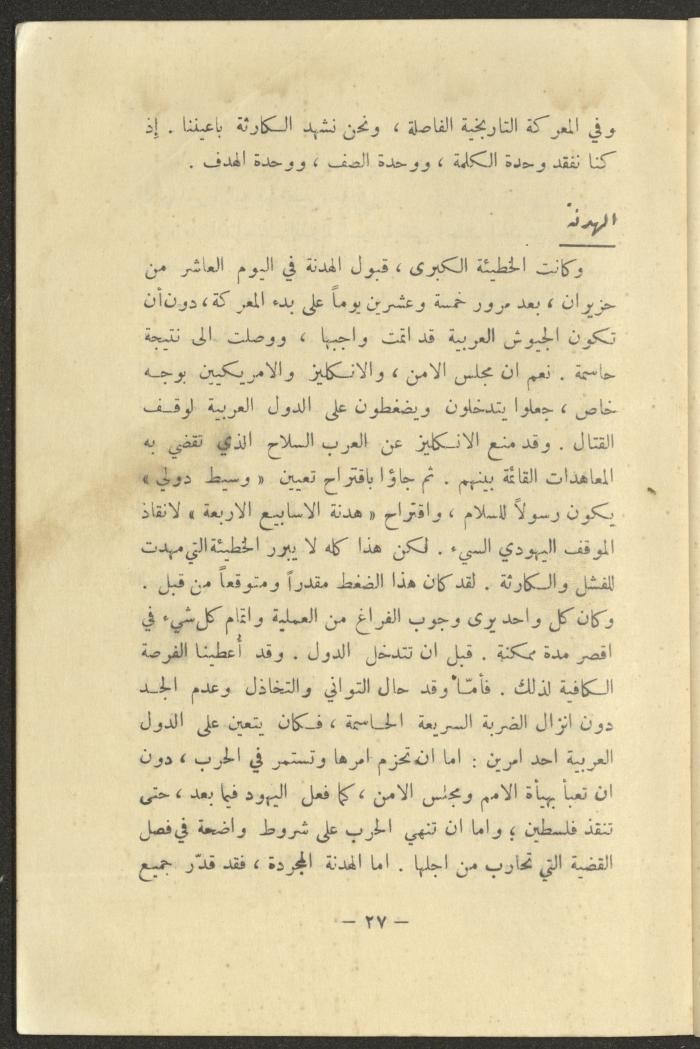 وفي المعركة التاريخية الفاصلة ، ونحن نشهد الكارثة باعيننا . إذ
كنا نفقد وحدة الكلمة ، ووحدة الصف ، ووحدة الهدف .
الهدنة
وكانت الخطيئة الكبرى ، قبول الهدنة في اليوم العاشر من
حزيران ، بعد مرور خمسة وعشرين يوماً على بدء المعركة ، دون أن
تكون الجيوش العربية قد اتمت واجبها ، ووصلت الى نتيجة
حاسمة . نعم ان مجلس الامن ، والانكليز والامريكيين بوجه
خاص ، جعلوا يتدخلون ويضغطون على الدول العربية لوقف
القتال . وقد منع الانكليز عن العرب السلاح الذي تقضي به
المعاهدات القائمة بينهم . ثم جاؤا باقتراح تعيين « وسيط دولي »
يكون رسولاً للسلام ، واقتراح « هدنة الاسابيع الاربعة » لانقاذ
الموقف اليهودي السيء . لكن هذا كله لا يبرر الخطيئة التي مهدت
للفشل والكارثة . لقد كان هذا الضغط مقدراً ومتوقعاً من قبل .
وكان كل واحد يرى وجوب الفراغ من العملية واتمام كل شيء في
اقصر مدة ممكنة . قبل ان تتدخل الدول . وقد أُعطينا الفرصة
الكافية لذلك . فأمّا وقد حال التواني والتخاذل وعدم الجد
دون انزال الضربة السريعة الحاسمة ، فكان يتعين على الدول
العربية احد امرين : اما ان تحزم امرها وتستمر في الحرب ، دون
ان تعبأ بهيأة الامم ومجلس الامن ، كما فعل اليهود فيما بعد ، حتى
تنقذ فلسطين ؛ واما ان تنهي الحرب على شروط واضحة في فصل
القضية التي تحارب من اجلها . اما الهدنة المجردة ، فقد قدّر جميع
— ٢٧ —